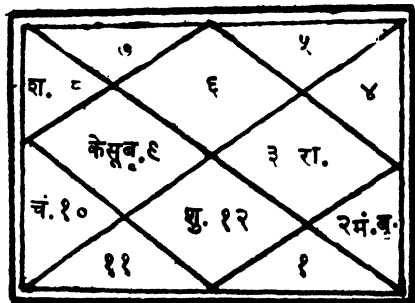 ७ ५
श. ८ ६ ४
केसूबु.९ ३ रा.
चं.१० शु. १२ २मं.बृ.
११ १